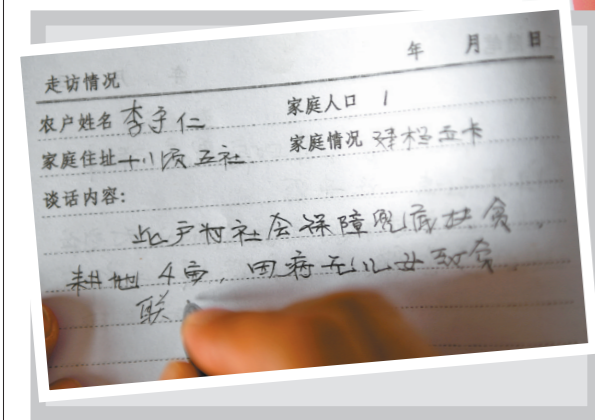 年 月 日
走访情况
农户姓名 李守仁 家庭人口 1
家庭住址 十八顷五社 家庭情况 建档立卡
谈话内容:
此户为社会保障兜底扶贫,
耕地4亩,因病无儿女致贫,
联